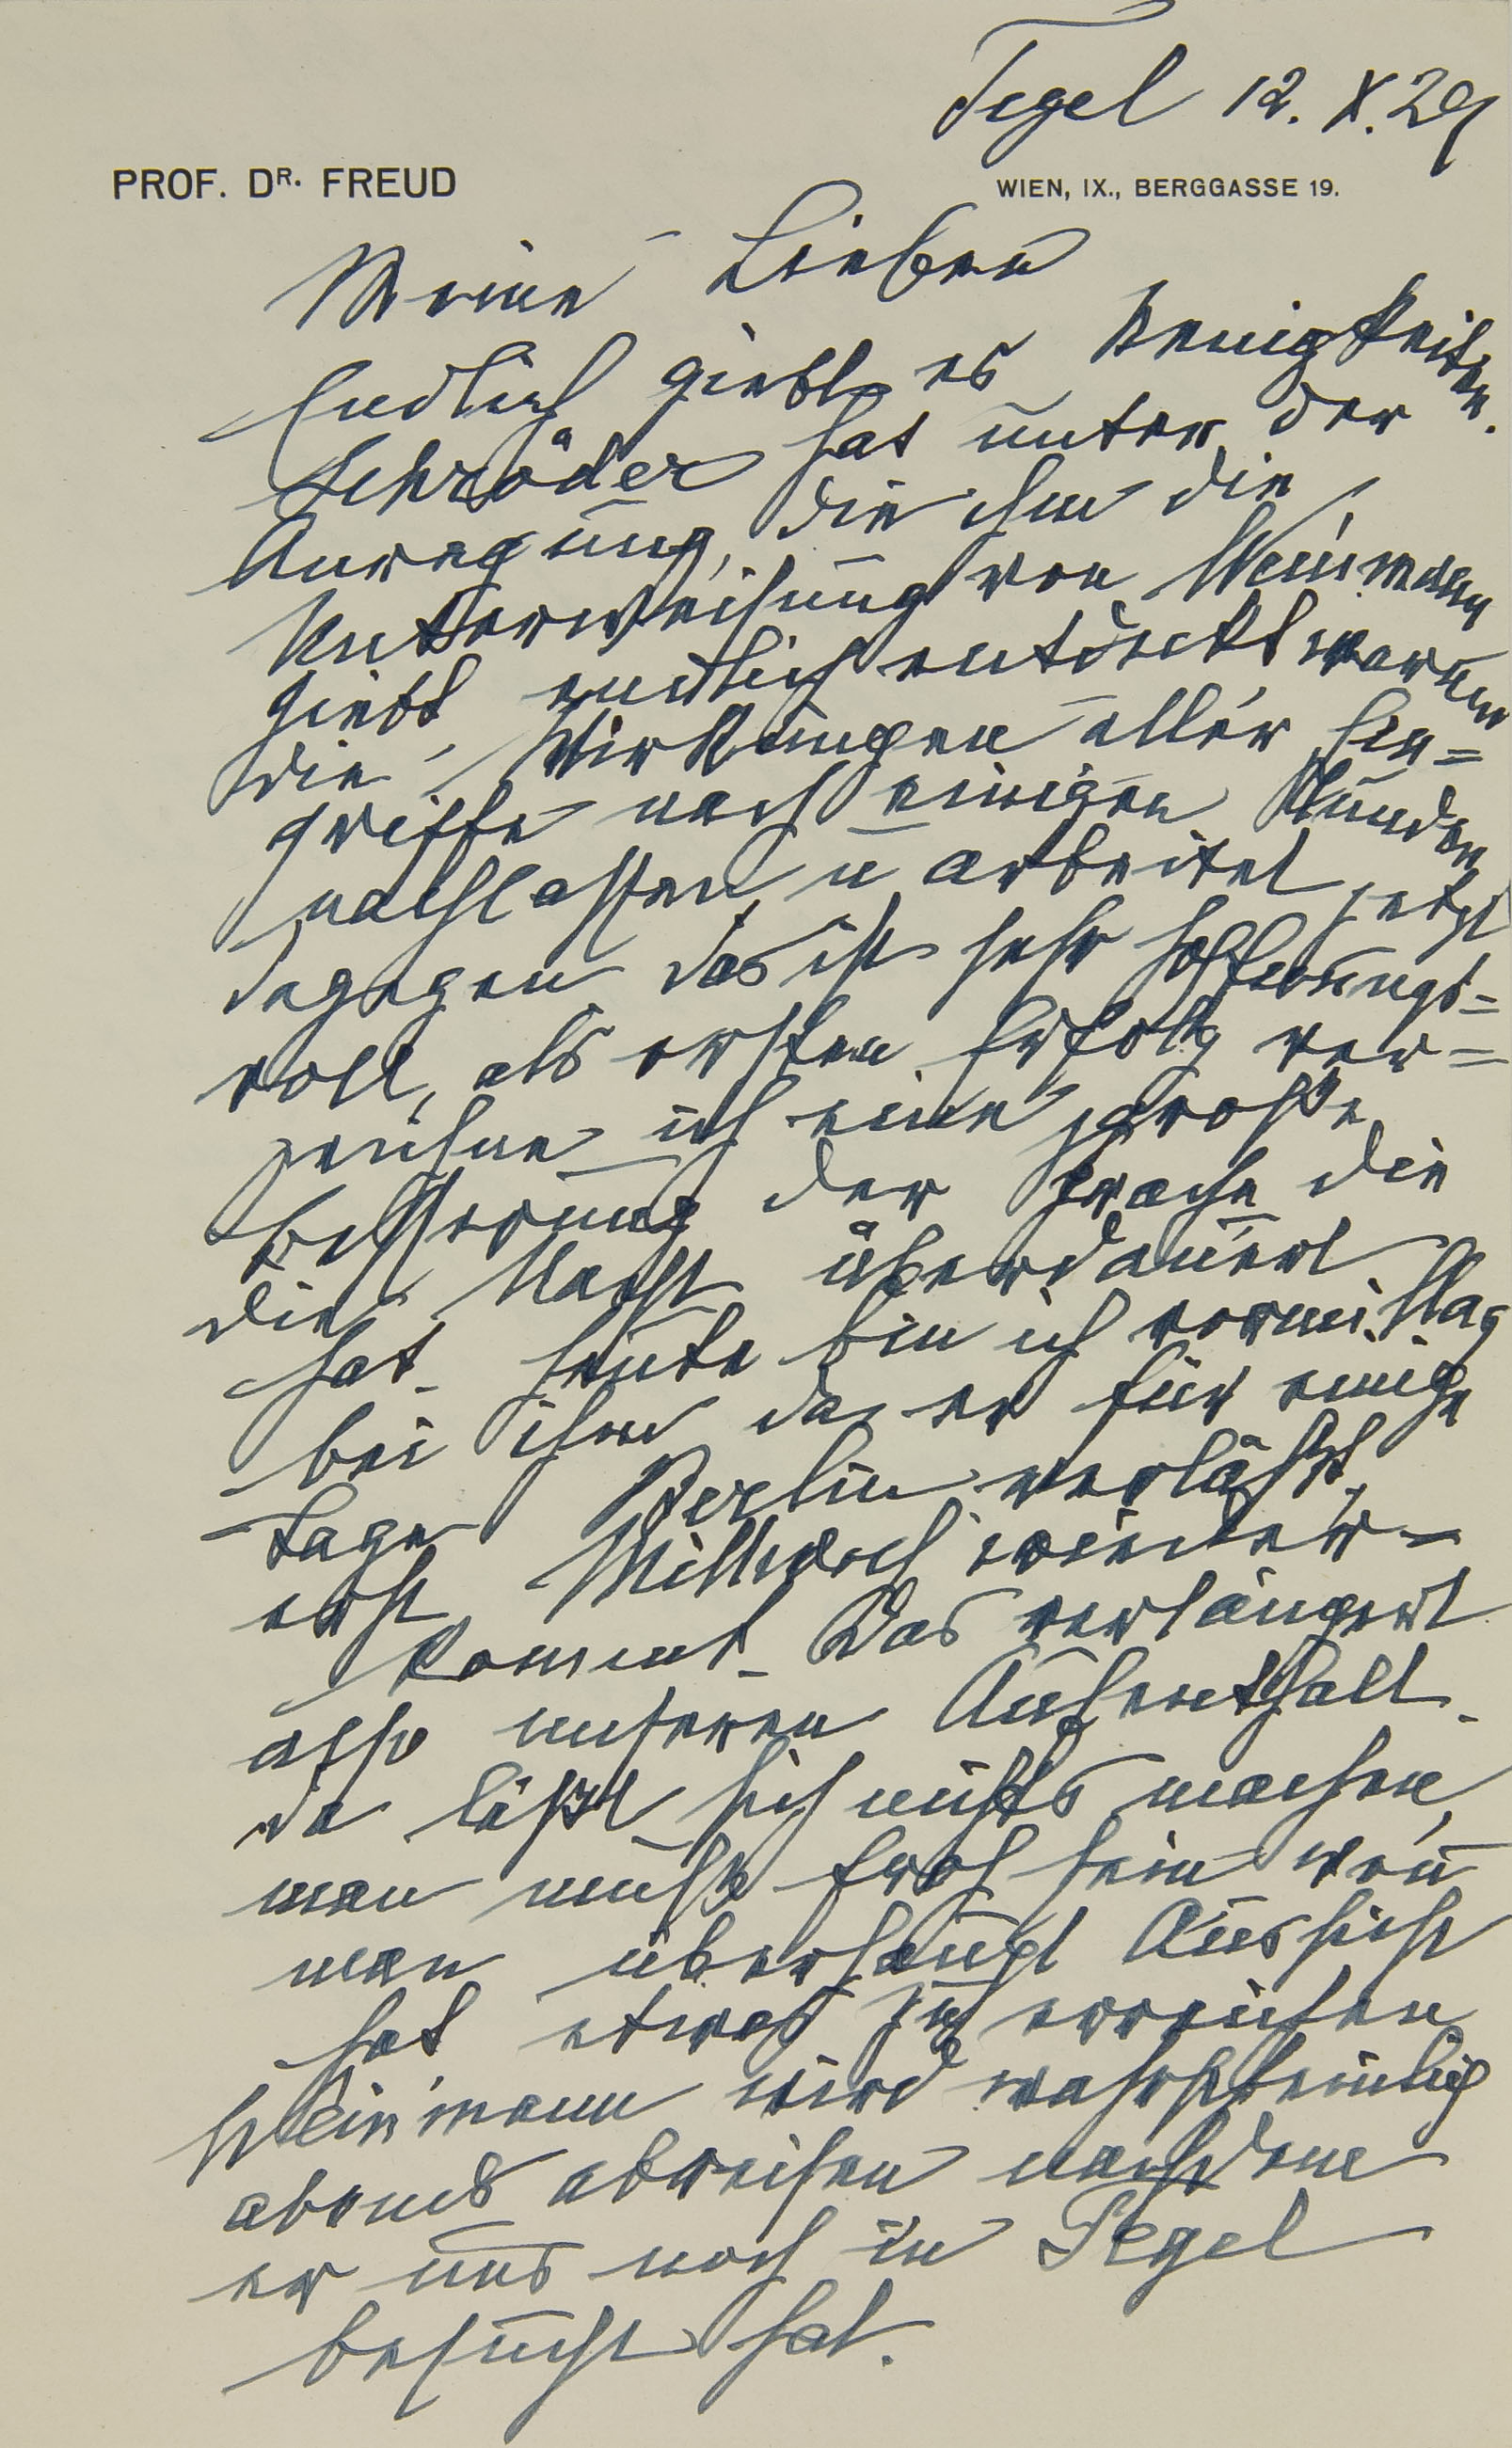 Tegel 12. X. 29
PROF. DR. FREUD
WIEN, IX., BERGGASSE 19.
Meine Lieben
Endlich giebt es Neuigkeiten.
Schröder hat unter der
Anregung, die ihm die
Unterweisung von Weinmann
giebt endlich entdeckt warum
die Wirkungen aller Ein=
griffe nach einigen Stunden
nachlassen, u arbeitet jetzt
dagegen. Das ist sehr hoffnungs=
voll, als ersten Erfolg ver=
zeichne ich eine große
Besserung der Sprache die
die Nacht überdauert
hat. Heute bin ich vormittag
bei ihm da er für einige
Tage Berlin verläßt,
erst Mittwoch wieder=
kommt. Das verlängert
also unseren Aufenthalt.
da läßt sich nichts machen,
man muß froh sein wen̄
man überhaupt Aussicht
hat etwas zu erreichen
Weinmann wird wahrscheinlich
abends abreisen nachdem
er uns noch in Tegel
besucht hat.